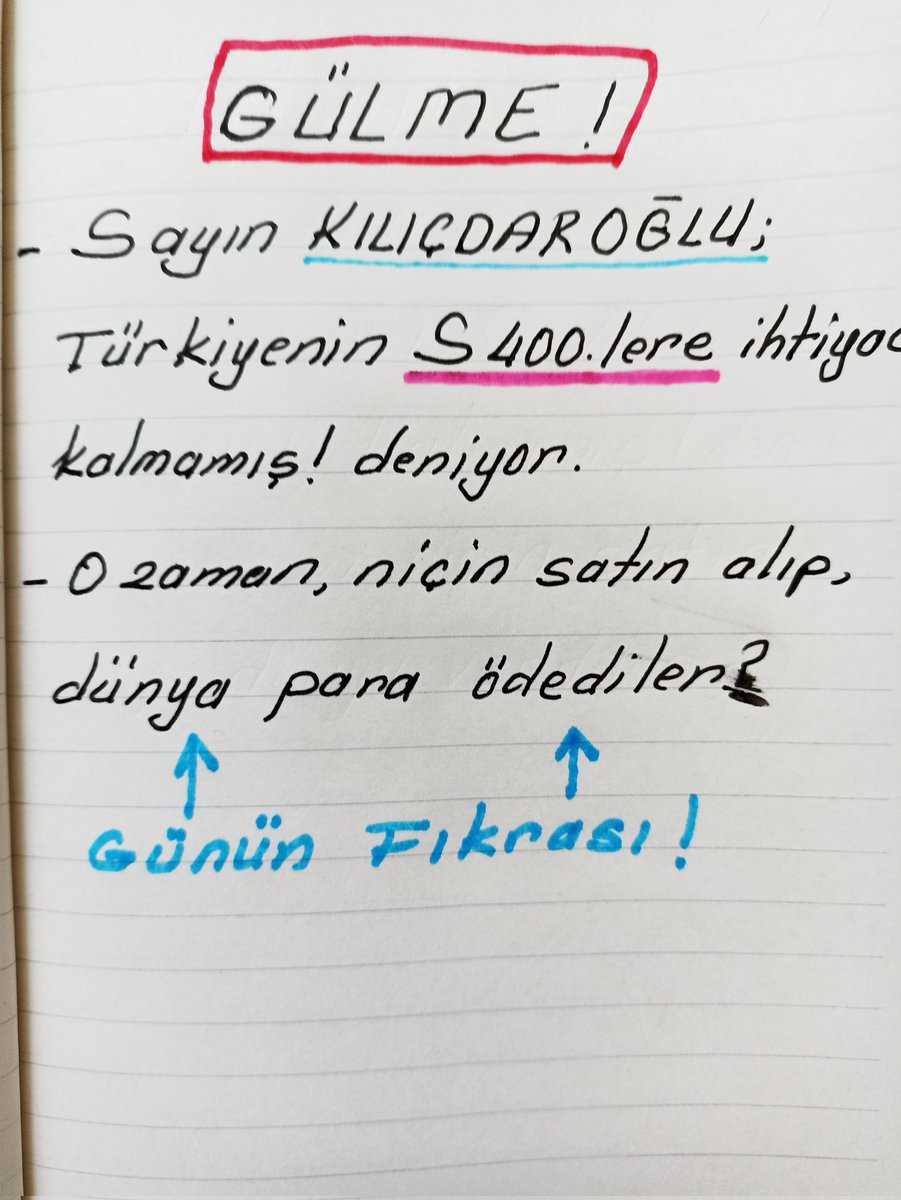 GÜLME !
- Sayın KILIÇDAROĞLU;
Türkiyenin S 400.lere ihtiyac
kalmamış! deniyor.
- O zaman, niçin satın alıp,
dünya para ödediler?
Günün Fıkrası!